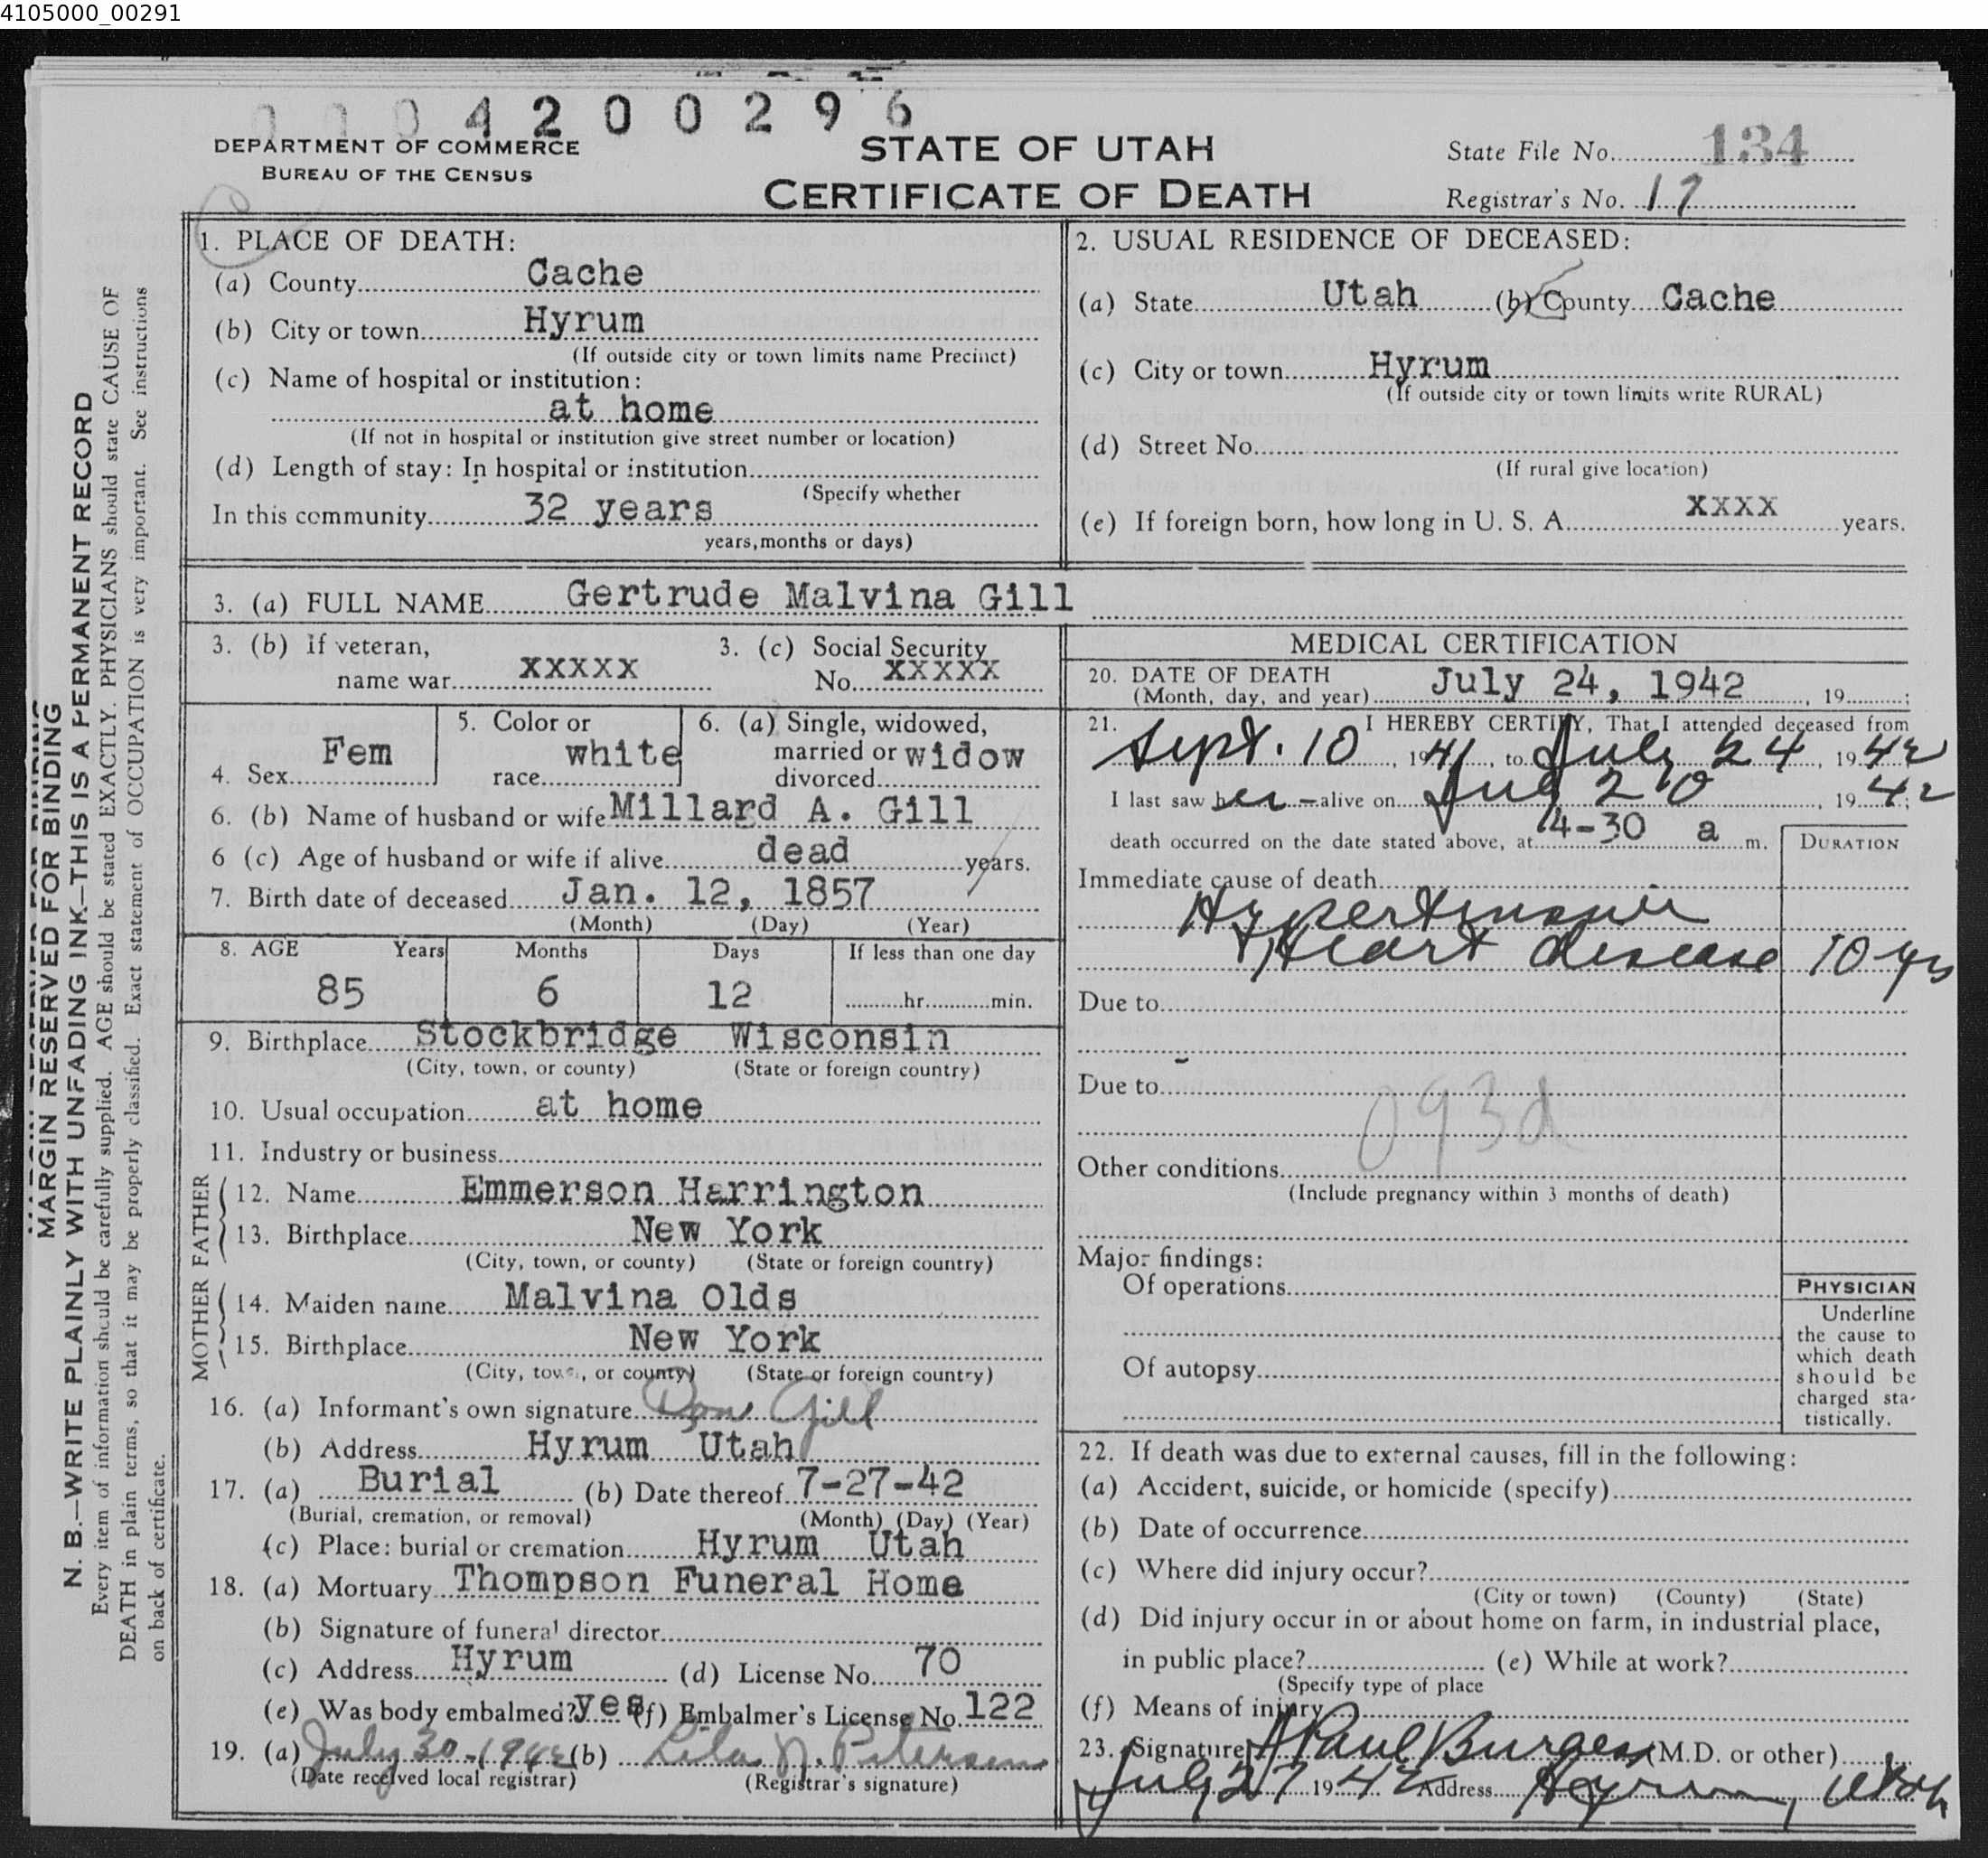 4105000_00291
0004200296
DEPARTMENT OF COMMERCE
BUREAU OF THE CENSUS
STATE OF UTAH
CERTIFICATE OF DEATH
State File No. 134
Registrar's No. 17
MARGIN RESERVED FOR BINDING
N. B.—WRITE PLAINLY WITH UNFADING INK—THIS IS A PERMANENT RECORD
Every item of information should be carefully supplied. AGE should be stated EXACTLY. PHYSICIANS should state CAUSE OF
DEATH in plain terms, so that it may be properly classified. Exact statement of OCCUPATION is very important. See instructions
on back of certificate.
1. PLACE OF DEATH:
(a) County Cache
(b) City or town Hyrum
(If outside city or town limits name Precinct)
(c) Name of hospital or institution:
at home
(If not in hospital or institution give street number or location)
(d) Length of stay: In hospital or institution
(Specify whether
In this community 32 years
years, months or days)
2. USUAL RESIDENCE OF DECEASED:
(a) State Utah (b) County Cache
(c) City or town Hyrum
(If outside city or town limits write RURAL)
(d) Street No.
(If rural give location)
(e) If foreign born, how long in U. S. A. XXXX years.
3. (a) FULL NAME Gertrude Malvina Gill
3. (b) If veteran,
name war XXXXX
3. (c) Social Security
No. XXXXX
4. Sex Fem
5. Color or
race white
6. (a) Single, widowed,
married or widow
divorced
6. (b) Name of husband or wife Millard A. Gill
6 (c) Age of husband or wife if alive dead years.
7. Birth date of deceased Jan. 12, 1857
(Month) (Day) (Year)
8. AGE Years Months Days If less than one day
85 6 12 hr. min.
9. Birthplace Stockbridge Wisconsin
(City, town, or county) (State or foreign country)
10. Usual occupation at home
11. Industry or business
FATHER
12. Name Emmerson Harrington
13. Birthplace New York
(City, town, or county) (State or foreign country)
MOTHER
14. Maiden name Malvina Olds
15. Birthplace New York
(City, town, or county) (State or foreign country)
16. (a) Informant's own signature Don Gill
(b) Address Hyrum Utah
17. (a) Burial (b) Date thereof 7-27-42
(Burial, cremation, or removal) (Month) (Day) (Year)
(c) Place: burial or cremation Hyrum Utah
18. (a) Mortuary Thompson Funeral Home
(b) Signature of funeral director
(c) Address Hyrum (d) License No. 70
(e) Was body embalmed? yes (f) Embalmer's License No. 122
19. (a) July 30-1942 (b) Lila N. Petersen
(Date received local registrar) (Registrar's signature)
MEDICAL CERTIFICATION
20. DATE OF DEATH
(Month, day, and year) July 24, 1942, 19 ;
21. I HEREBY CERTIFY, That I attended deceased from
Sept. 10, 1941, to July 24, 1942
I last saw her alive on July 20, 1942;
death occurred on the date stated above, at 4-30 a m.
DURATION
Immediate cause of death
Hypertensive
Heart disease 10 yrs
Due to
Due to
093d
Other conditions
(Include pregnancy within 3 months of death)
Major findings:
Of operations
Of autopsy
PHYSICIAN
Underline
the cause to
which death
should be
charged sta-
tistically.
22. If death was due to external causes, fill in the following:
(a) Accident, suicide, or homicide (specify)
(b) Date of occurrence
(c) Where did injury occur?
(City or town) (County) (State)
(d) Did injury occur in or about home on farm, in industrial place,
in public place? (e) While at work?
(Specify type of place
(f) Means of injury
23. Signature Paul Burgess (M.D. or other)
July 27 1942 Address Hyrum, Utah